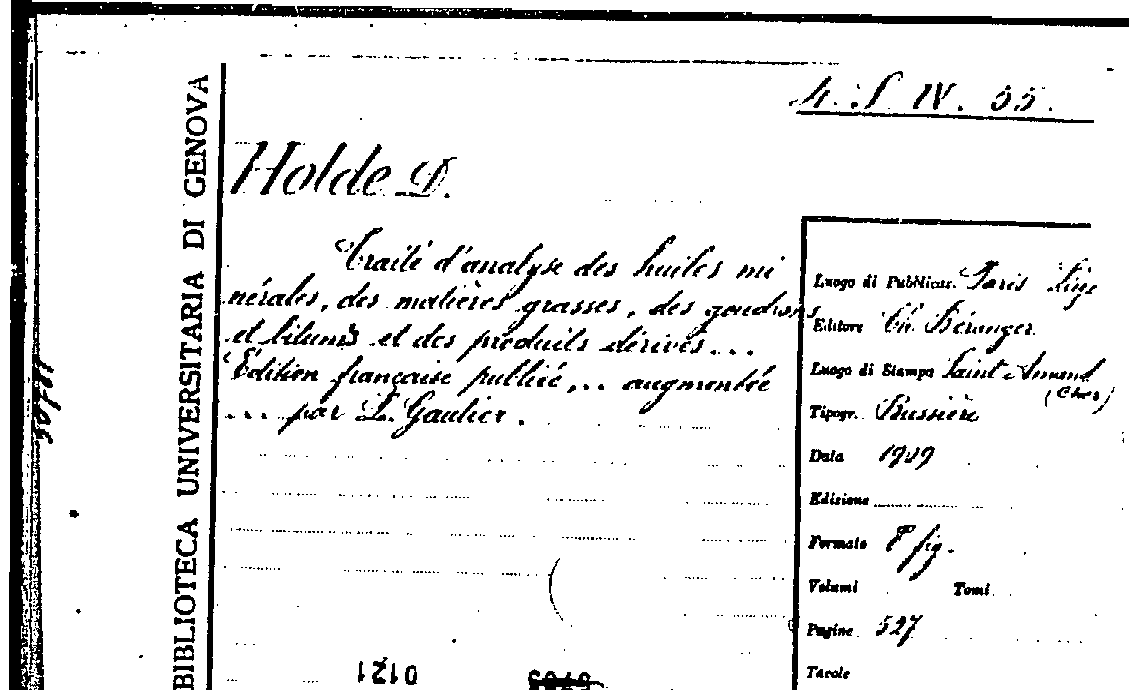 4. S. IV. 55.
BIBLIOTECA UNIVERSITARIA DI GENOVA
Holde D.
Traité d'analyse des huiles mi
nérales, des matières grasses, des goudrons
et bitums et des produits dérivés...
Edition française publiée,.. augmentée
... par L. Gautier.
Luogo di Pubblicaz. Paris Liège
Editore Ch. Béranger
Luogo di Stampa Saint Amand
(Cher)
Tipogr. Bussière
Data 1909
Edizione
Formato 8° fig.
Volumi Tomi
Pagine 527
Tavole
0121